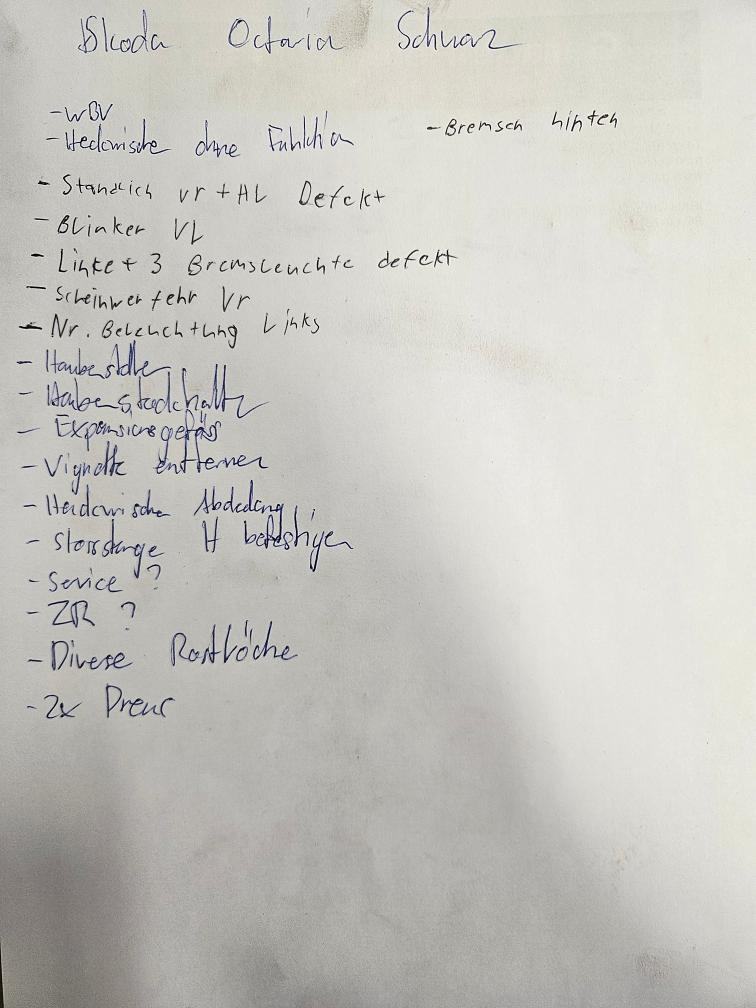 Skoda Octavia Schwarz
- WBV
- Heckwische ohne Funktion
- Bremsen hinten
- Standlich vr + HL Defekt
- Blinker VL
- Linke + 3 Bremsleuchte defekt
- Scheinwerfehr Vr
- Nr. Beleuchtung Links
- Haubenstodchalter
- Expansionsgefäss
- Vignette entfernen
- Abdeckung
- Stossstange H befestigen
- Service ?
- ZR ?
- Diverse Rostlöche
- 2x